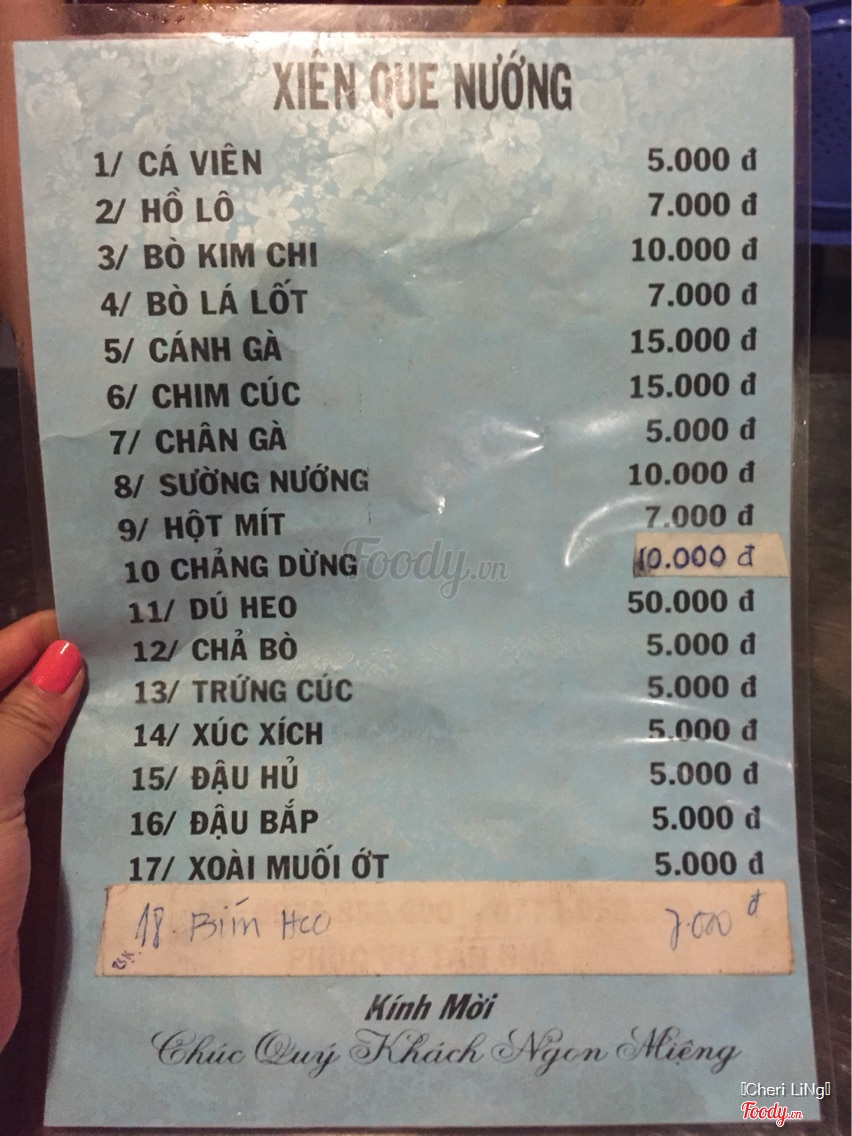 XIÊN QUE NƯỚNG
1/ CÁ VIÊN 5.000 đ
2/ HỒ LÔ 7.000 đ
3/ BÒ KIM CHI 10.000 đ
4/ BÒ LÁ LỐT 7.000 đ
5/ CÁNH GÀ 15.000 đ
6/ CHIM CÚC 15.000 đ
7/ CHÂN GÀ 5.000 đ
8/ SƯỜNG NƯỚNG 10.000 đ
9/ HỘT MÍT 7.000 đ
10 CHẢNG DỪNG 10.000 đ
Foody.vn
11/ DÚ HEO 50.000 đ
12/ CHẢ BÒ 5.000 đ
13/ TRỨNG CÚC 5.000 đ
14/ XÚC XÍCH 5.000 đ
15/ ĐẬU HỦ 5.000 đ
16/ ĐẬU BẮP 5.000 đ
17/ XOÀI MUỐI ỚT 5.000 đ
18. Bím Heo 7.000 đ
Kính Mời
Chúc Quý Khách Ngon Miệng
Cheri LiNg
Foody.vn